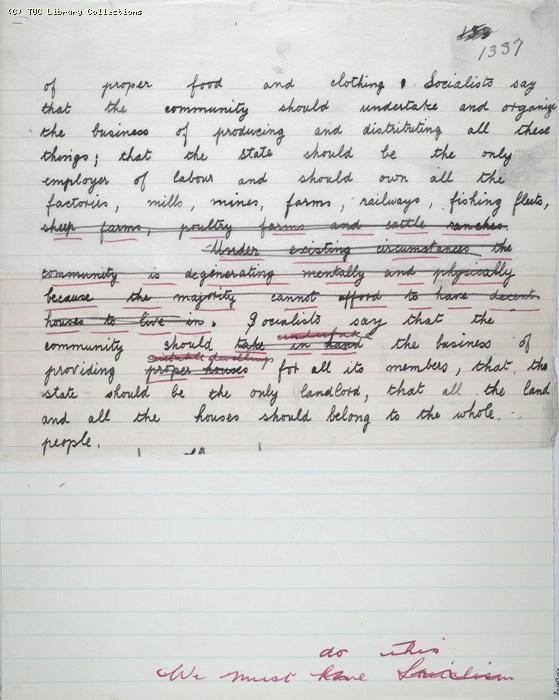 (C) TUC Library Collections
1337
of proper food and clothing. Socialists say
that the community should undertake and organize
the business of producing and distributing all these
things; that the state should be the only
employer of labour and should own all the
factories, mills, mines, farms, railways, fishing fleets,
sheep farms, poultry farms and cattle ranches.
Under existing circumstances the
community is degenerating mentally and physically
because the majority cannot afford to have decent
houses to live in. Socialists say that the
undertake
community should take in hand the business of
suitable dwellings
providing proper houses for all its members, that the
state should be the only landlord, that all the land
and all the houses should belong to the whole
people.
do this
We must have Socialism